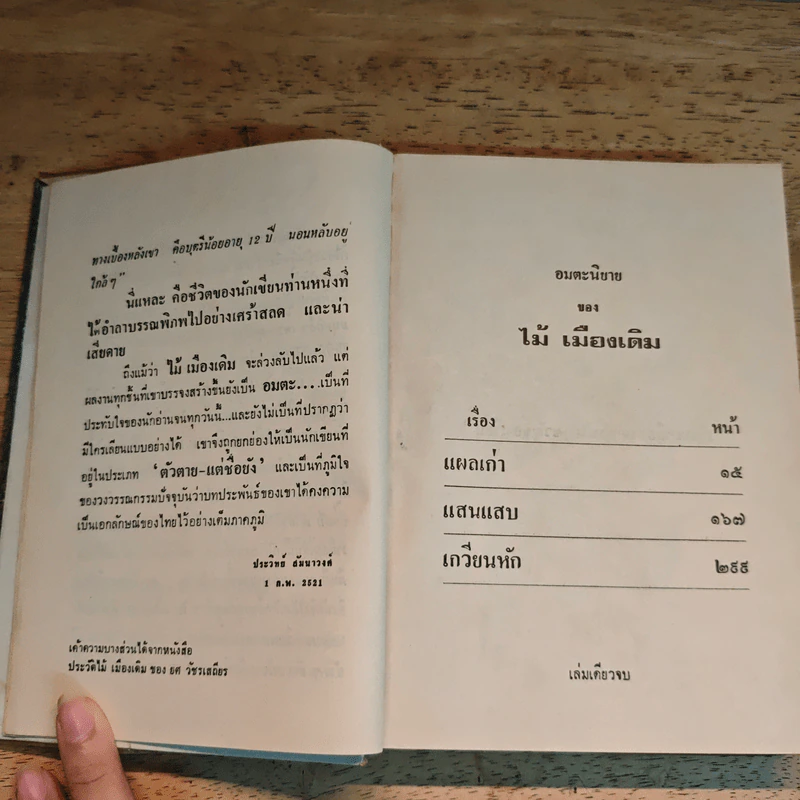 ทางเบื้องหลังเขา คือบุตรีน้อยอายุ 12 ปี นอนหลับอยู่
ใกล้ๆ"
นี่แหละ คือชีวิตของนักเขียนท่านหนึ่งที่
ได้อำลาบรรณพิภพไปอย่างเศร้าสลด และน่า
เสียดาย
ถึงแม้ว่า ไม้ เมืองเดิม จะล่วงลับไปแล้ว แต่
ผลงานทุกชิ้นที่เขาบรรจงสร้างขึ้นยังเป็น อมตะ....เป็นที่
ประทับใจของนักอ่านจนทุกวันนี้...และยังไม่เป็นที่ปรากฏว่า
มีใครเลียนแบบอย่างได้ เขาจึงถูกยกย่องให้เป็นนักเขียนที่
อยู่ในประเภท 'ตัวตาย-แต่ชื่อยัง' และเป็นที่ภูมิใจ
ของวงวรรณกรรมปัจจุบันว่าบทประพันธ์ของเขาได้คงความ
เป็นเอกลักษณ์ของไทยไว้อย่างเต็มภาคภูมิ
ประวิทย์ สัมนาวงศ์
1 ก.พ. 2521
เค้าความบางส่วนได้จากหนังสือ
ประวัติไม้ เมืองเดิม ของ ยศ วัชรเสถียร
อมตะนิยาย
ของ
ไม้ เมืองเดิม
เรื่อง หน้า
แผลเก่า ๑๕
แสนแสบ ๑๖๗
เกวียนหัก ๒๙๙
เล่มเดียวจบ